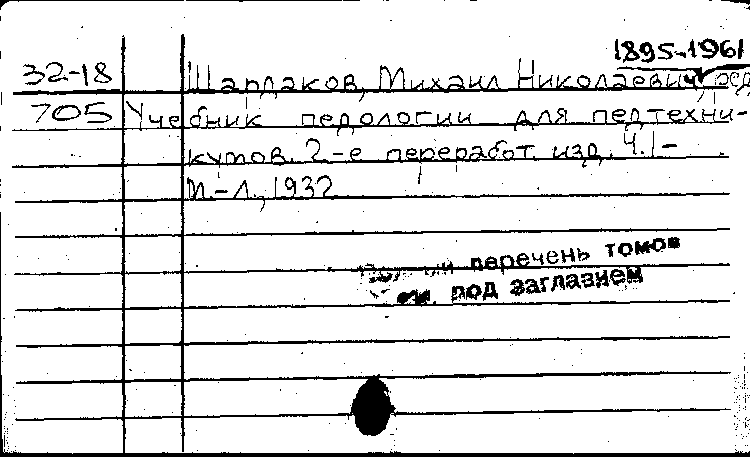 1895-1961
32-18 Шардаков, Михаил Николаевич, ред.
705 Учебник педологии для педтехни-
кумов. 2-е переработ. изд. Ч. 1-
М.-Л., 1932
перечень томов
см. под заглавием